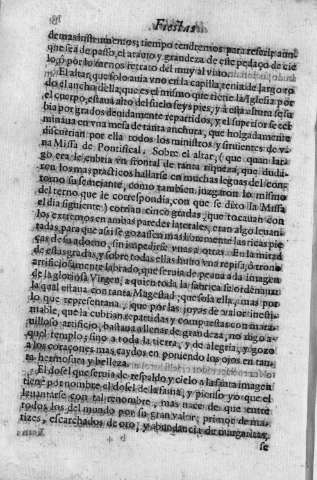 Fiestas
de mas instrumentos; tiempo tendremos para referir aun
que sea de passo, el atauio y grandeza de este pedaço de cie
lo, o por lo menos retrato del muy al viuo.
El altar, que solo auia vno en la capilla, tenia de largo to
do el ancho della, que es el mismo que tiene la Iglesia por
el cuerpo, estaua alto del suelo seys pies, y a esta altura se su
bia por grados deuidamente repartidos, y el superior se
minaua en vna mesa de tanta anchura, que holgadamente
discurrian por ella todos los ministros y siruientes de vna
Missa de Pontifical. Sobre el altar, (que quan lar
go era le cubria vn frontal de tanta riqueza, que dudi
ron los mas practicos hallarse en muchas leguas del con
torno su semejante, como tambien juzgaron lo mismo
del terno que le correspondia, con que se dixo la Missa
el dia siguiente) corrian cinco gradas, que tocauan con
los extremos en ambas paredes laterales, eran algo leuan
tadas para que assi se gozassen mas locidamente las ricas pie
ças de su adorno, sin impedirse vnas a otras. En la mitad
de estas gradas, y sobre todas ellas huuo vna repisa, o trono
artificiosamente labrado, que seruia de peana a la imagen
de la gloriosa Virgen, a quien toda la fabrica se ordenaua
la qual estaua con tanta Magestad; que sola ella, mas por
lo que representaua, que por las joyas de valor inesti
mable, que la cubrian repartidas y compuestas con mara
uilloso artificio, bastaua a llenar de grandeza, no digo a
quel templo; sino a toda la tierra, y de alegria, y gozo
a los coraçones mas caydos en poniendo los ojos en tan
ta hermosura y belleza.
El dosel que seruia de respaldo y cielo a la santa imagen
tiene por nombre el dosel de la fauna, y pienso yo que el
leuantarse con tal renombre, mas nace de que entre
todos los del mundo por su gran valor; primor de ma
tizes, escarchados de oro, y abundancia de margaritas,
se